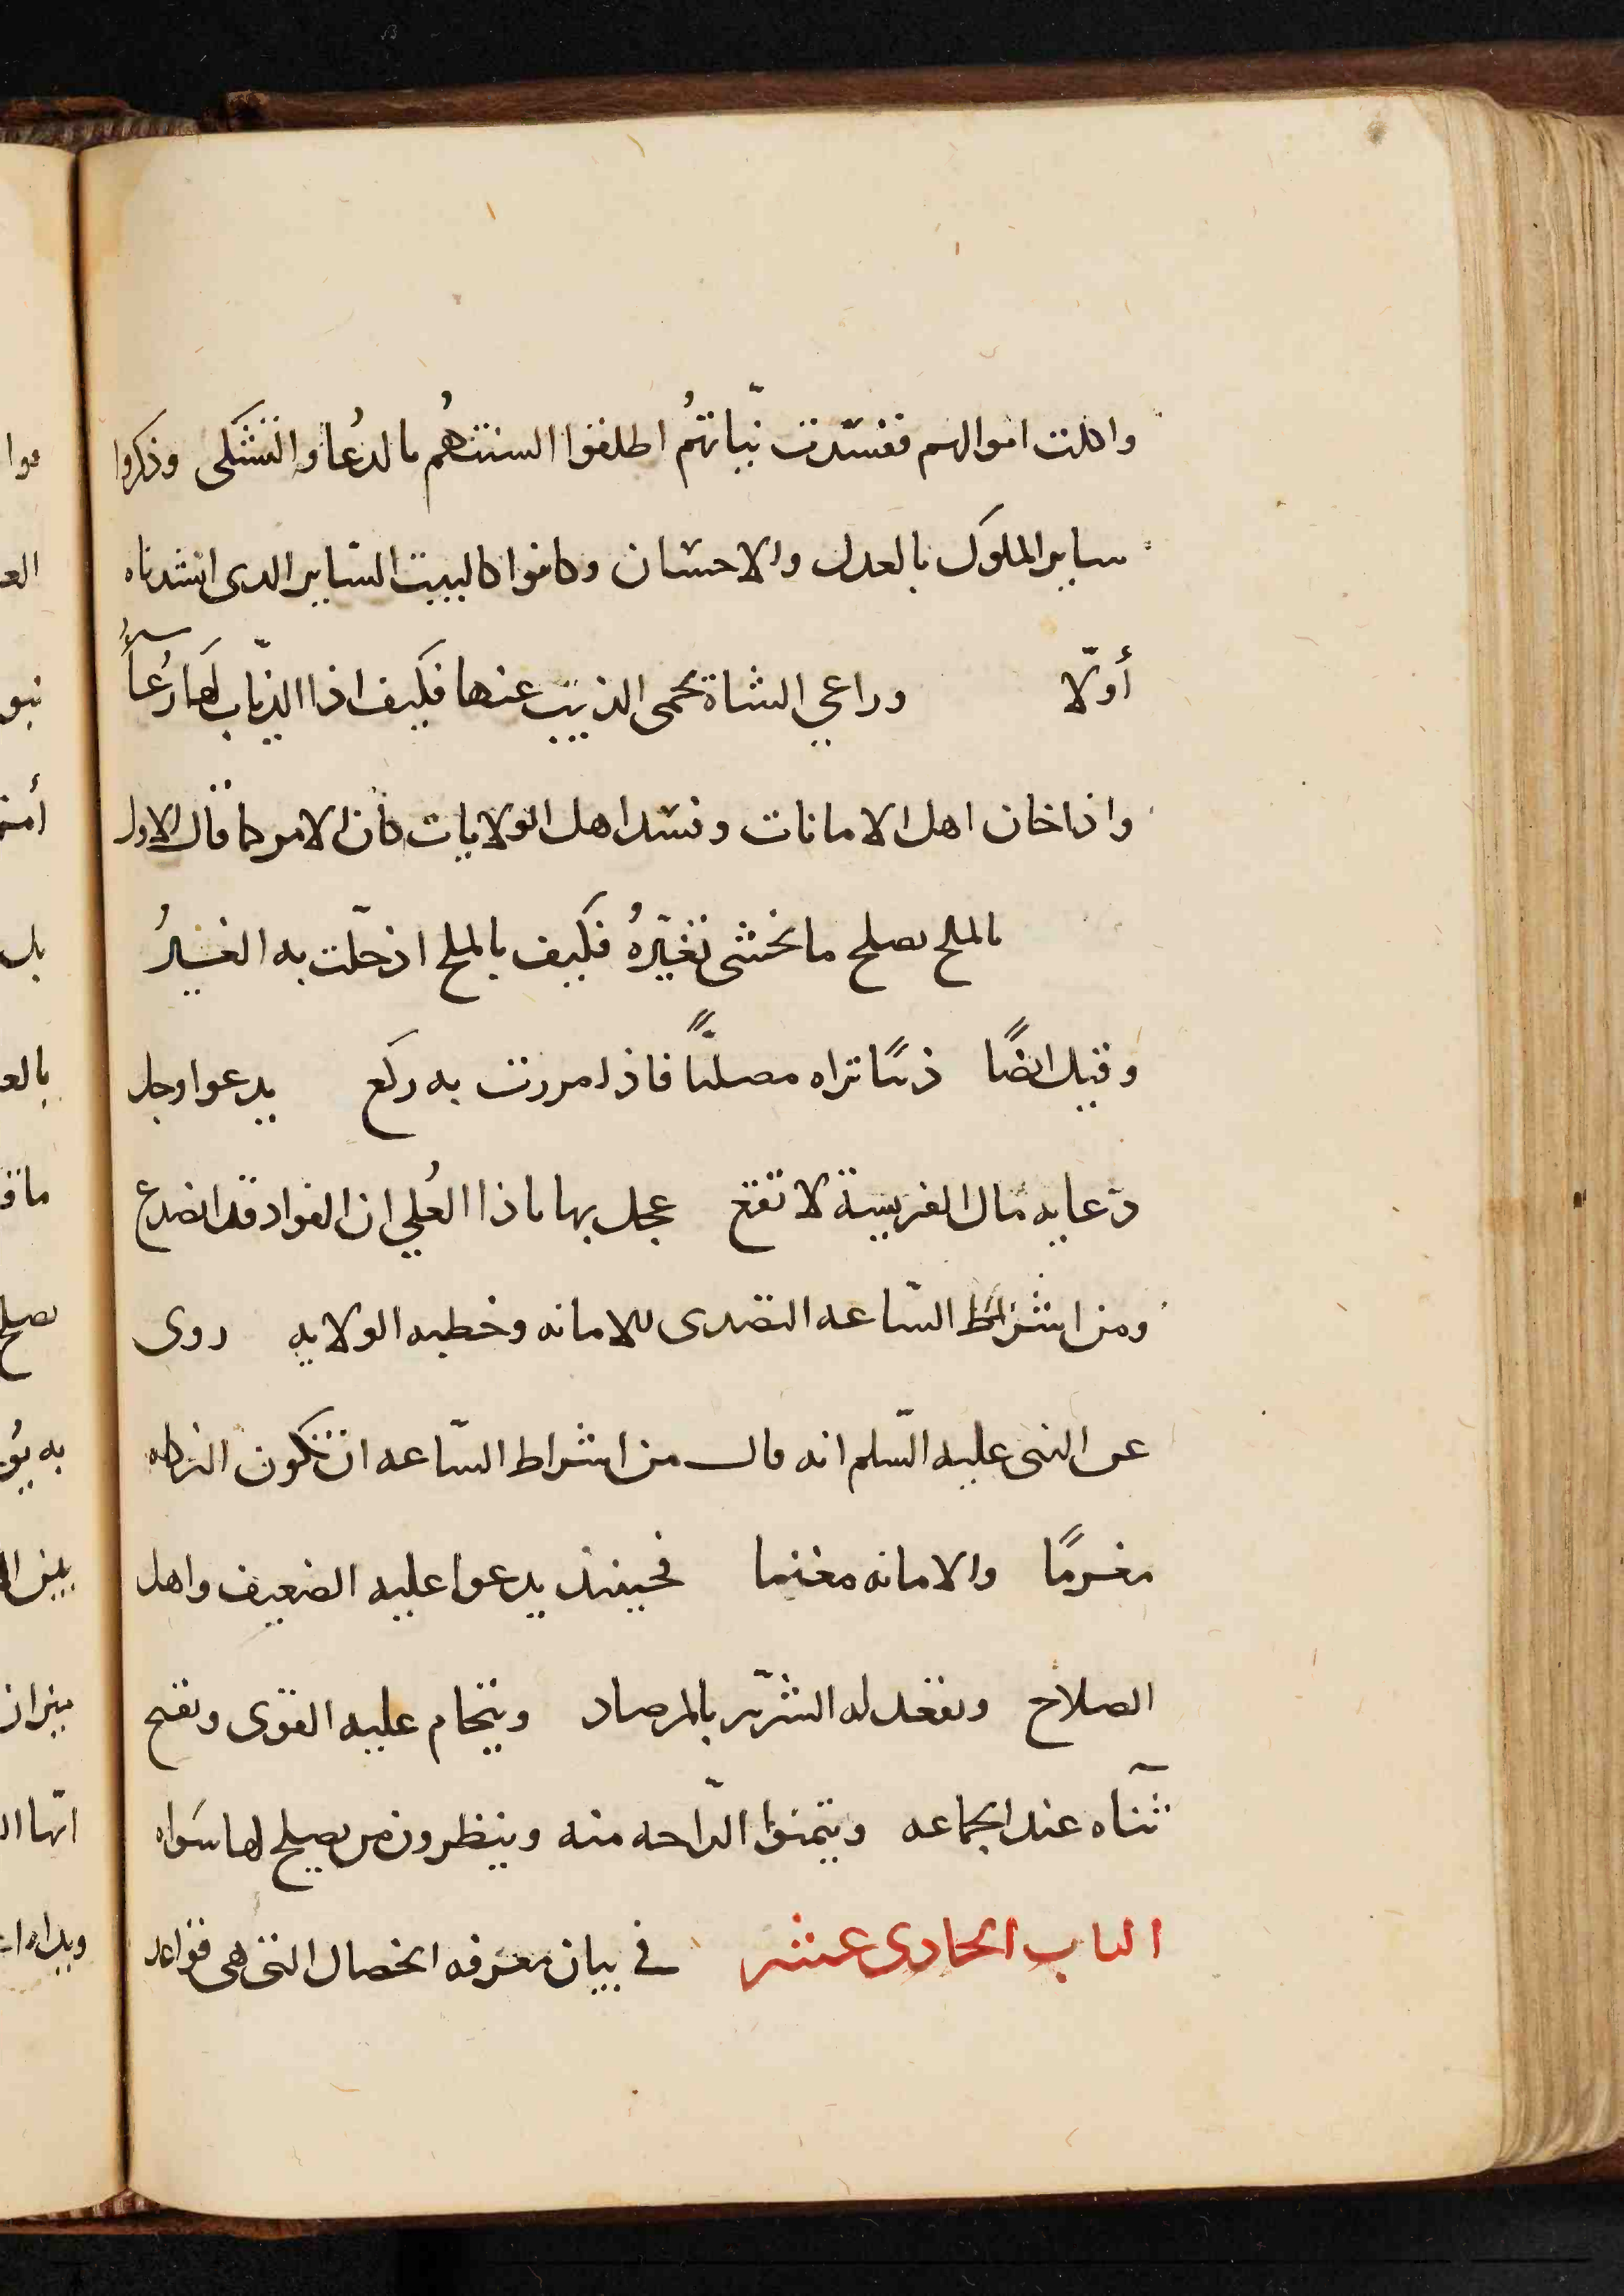 واكلت اموالهم ففسدت نيّاتهُم اطلقوا السنتهُم بالدُعا والتشَكى وذكروا
ساير الملوك بالعدل والاحسان وكانوا كالبيت الساير الدى انشدناه
أولّا وراعي الشاة يحمى الذيب عنها فكيف اذا الذياب لها رُعاءُ
واذا خان اهل الامانات وفسد اهل الولايات كان الامر كما قال الاول
بالملح يصلح ما يخشى تغيّرهُ فكيف بالملح اذ حلّت به الغيرُ
وقيل ايضًا ذئبًا تراه مصليًّا فاذا مررت به ركع يدعوا وجل
دعايه مال الفريسة لا تقع عجل بها ياذا العُلي ان الفواد قد انصدع
ومن اشراط السّاعه التصدى للامانه وخطبه الولايه روى
عن النبى عليه السّلم انه قال من اشراط السّاعه ان تكون الزكاه
مغرمًا والامانه مغنما فحينئذ يدعوا عليه الضعيف واهل
الصلاح ويقعد له الشرّير بالمرصاد ويتحام عليه القوّى ويقبح
ثنآه عند الجماعه ويتمنوا الرّاحه منه وينظرون من يصلح لها سَواه
الباب الحادى عشر في بيان معرفه الخصال التى هى قواعد